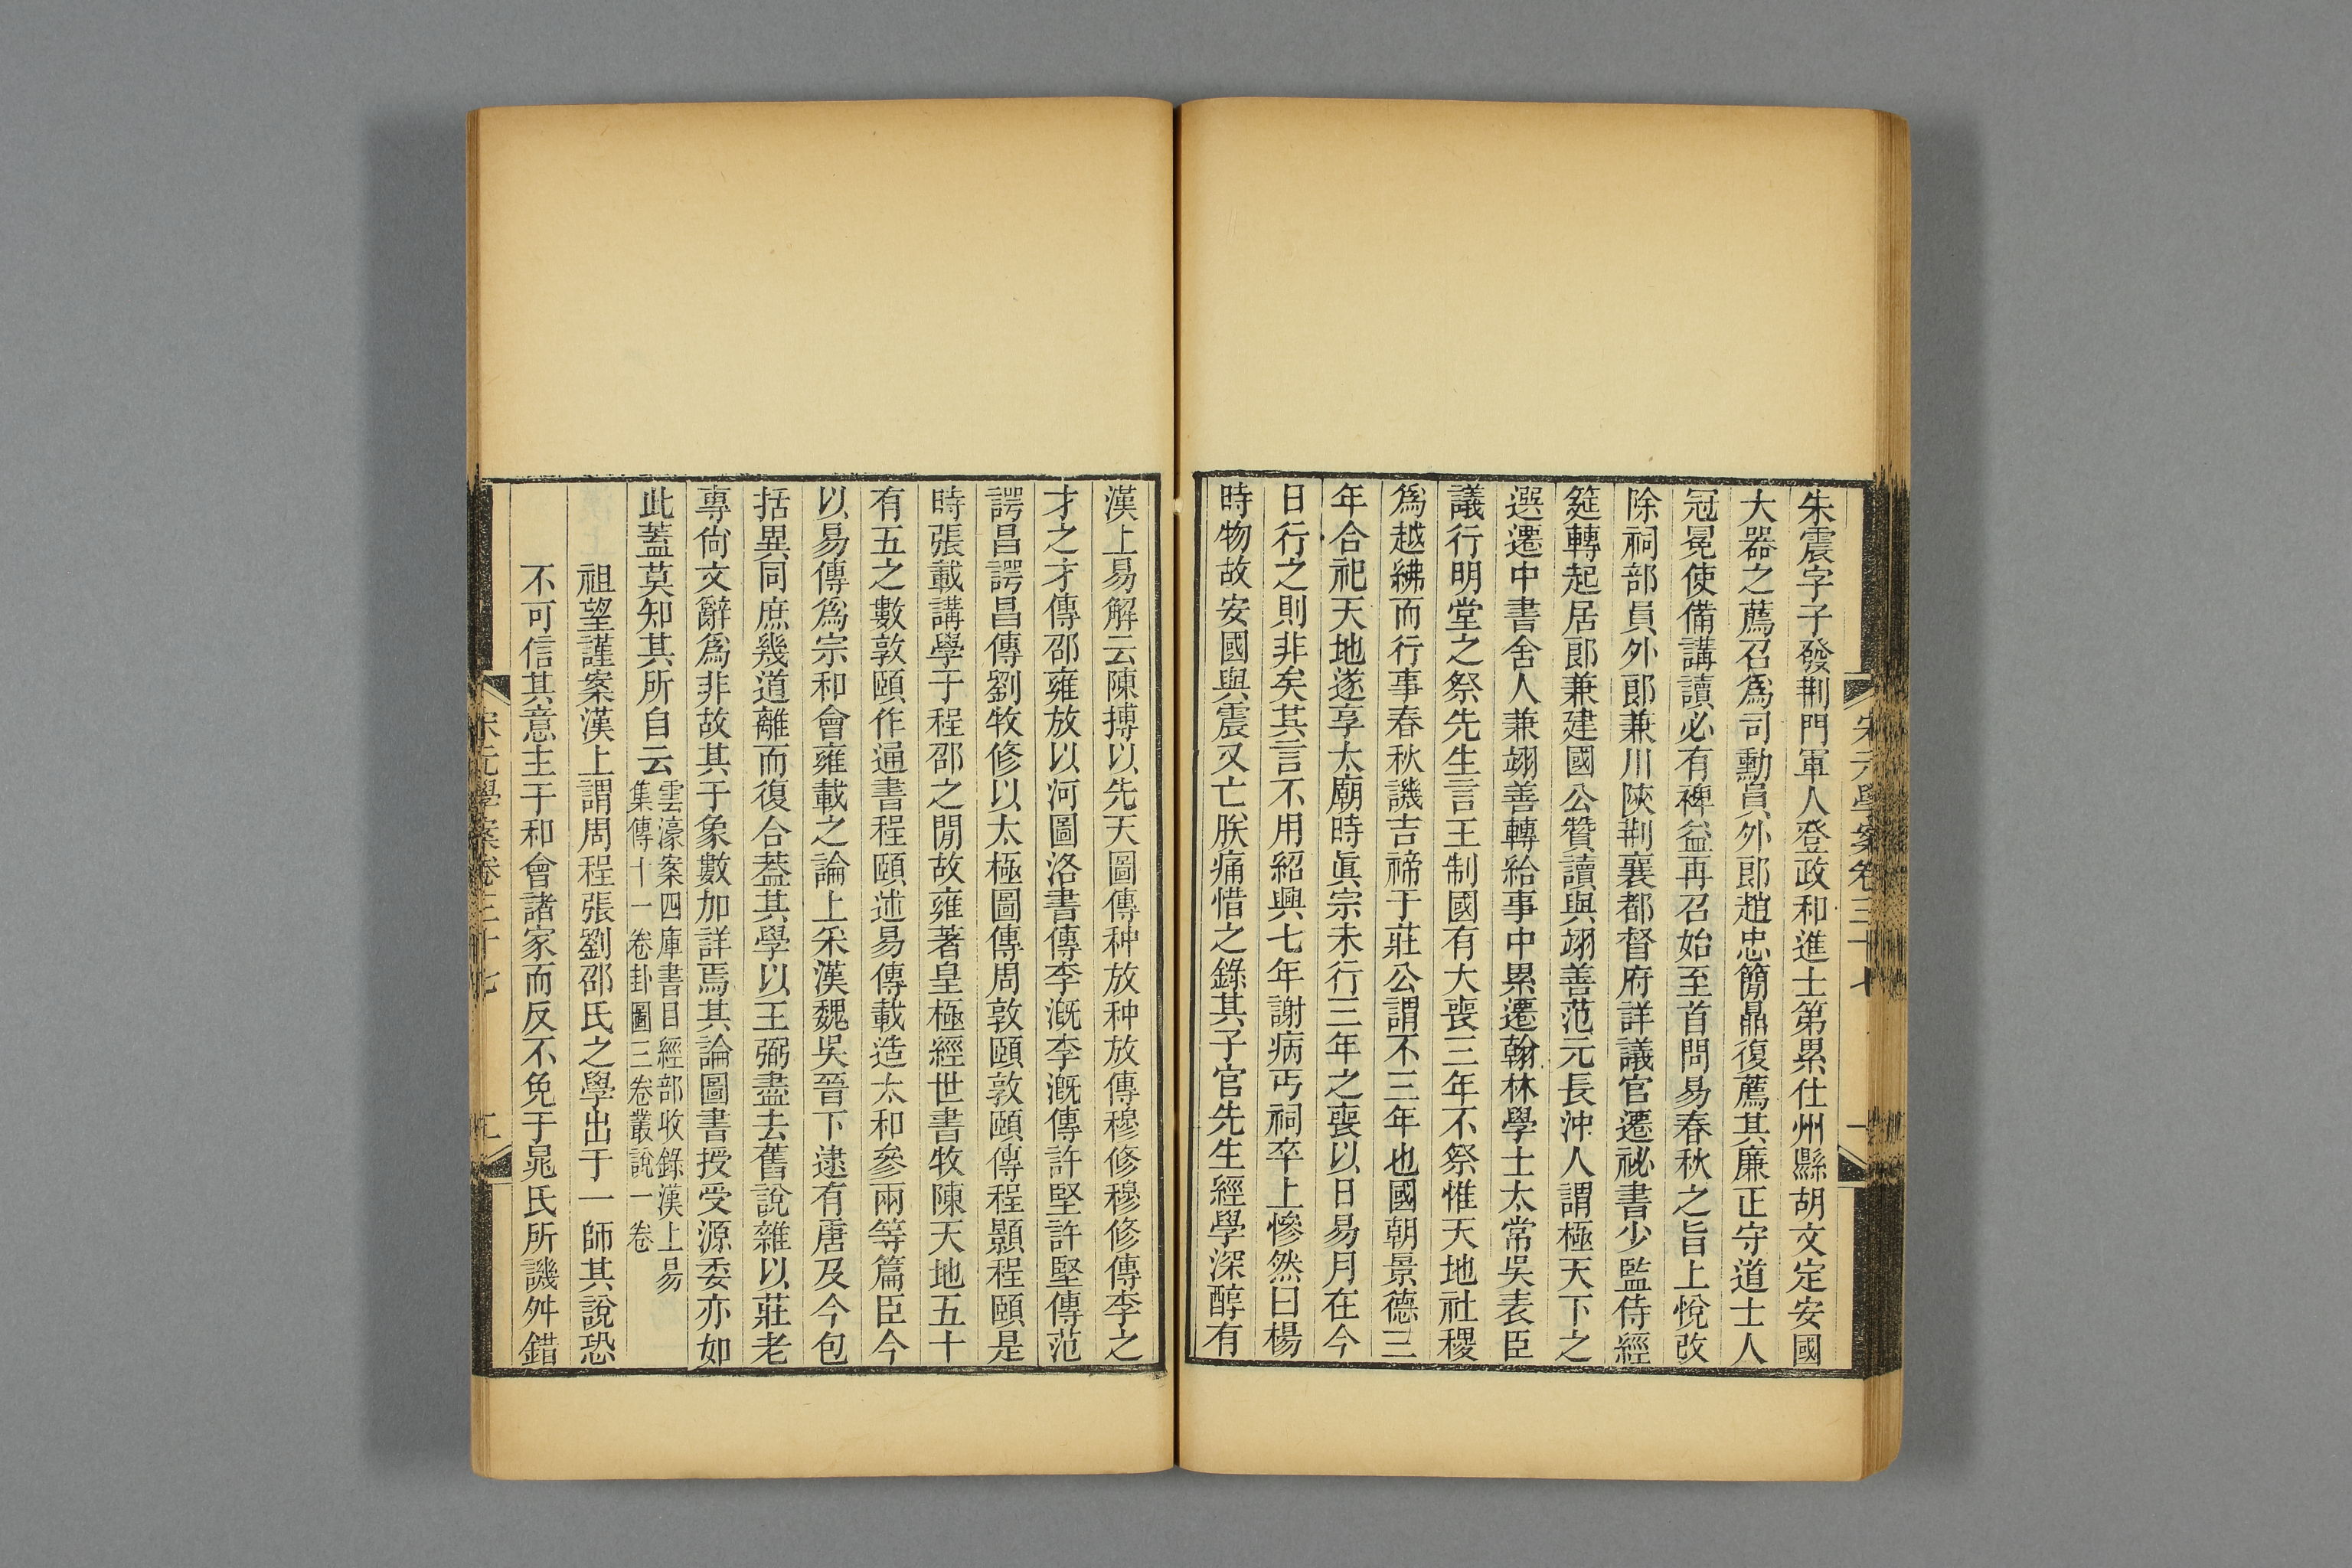 朱震字子發荆門軍人登政和進士第累仕州縣胡文定安國
大器之薦召爲司勳員外郎趙忠簡鼎復薦其廉正守道士人
冠冕使備講讀必有裨益再召始至首問易春秋之旨上悅改
除祠部員外郎兼川陝荆襄都督府詳議官遷祕書少監侍經
筵轉起居郎兼建國公贊讀與翊善范元長沖人謂極天下之
選遷中書舍人兼翊善轉給事中累遷翰林學士太常吳表臣
議行明堂之祭先生言王制國有大喪三年不祭惟天地社稷
爲越紼而行事春秋譏吉禘于莊公謂不三年也國朝景德三
年合祀天地遂享太廟時眞宗未行三年之喪以日易月在今
日行之則非矣其言不用紹興七年謝病丐祠卒上慘然曰楊
時物故安國與震又亡朕痛惜之錄其子官先生經學深醇有
宋元學案卷三十七
漢上易解云陳摶以先天圖傳种放种放傳穆修穆修傳李之
才之才傳邵雍放以河圖洛書傳李溉李溉傳許堅許堅傳范
諤昌諤昌傳劉牧修以太極圖傳周敦頤敦頤傳程顥程頤是
時張載講學于程邵之閒故雍著皇極經世書牧陳天地五十
有五之數敦頤作通書程頤述易傳載造太和參兩等篇臣今
以易傳爲宗和會雍載之論上采漢魏吳晉下逮有唐及今包
括異同庶幾道離而復合蓋其學以王弼盡去舊說雜以莊老
專尙文辭爲非故其于象數加詳焉其論圖書授受源委亦如
此蓋莫知其所自云
雲濠案四庫書目經部收錄漢上易
集傳十一卷卦圖三卷叢說一卷
祖望謹案漢上謂周程張劉邵氏之學出于一師其說恐
不可信其意主于和會諸家而反不免于晁氏所譏舛錯
宋元學案卷三十七